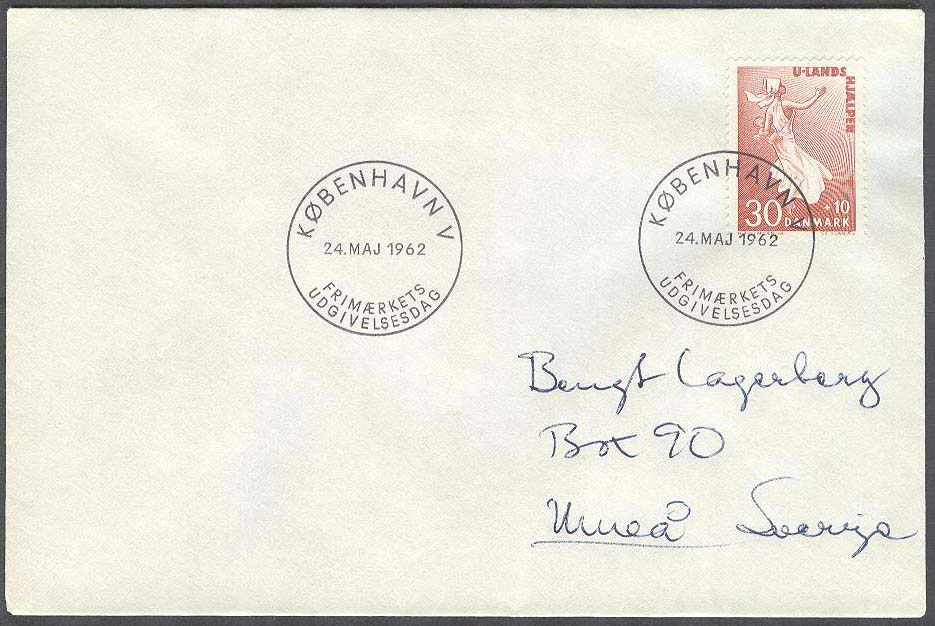 U-LANDS
HJÆLPEN
30 + 10
DANMARK
KØBENHAVN V
24.MAJ 1962
FRIMÆRKETS
UDGIVELSESDAG
KØBENHAVN V
24.MAJ 1962
FRIMÆRKETS
UDGIVELSESDAG
Bengt Lagerberg
Box 90
Umeå Sverige